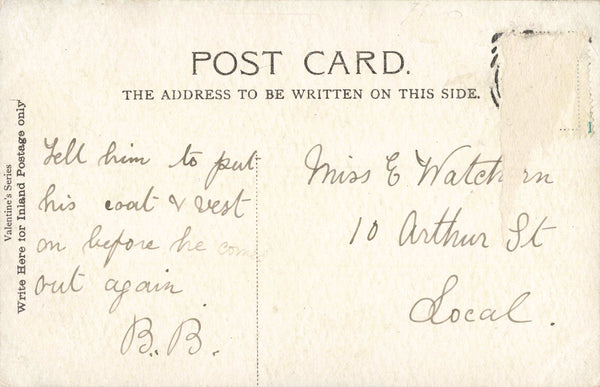 POST CARD.
THE ADDRESS TO BE WRITTEN ON THIS SIDE.
Valentine's Series
Write Here for Inland Postage only
Tell him to put
his coat & vest
on before he comes
out again
B.B.
Miss E
10 Arthur St
Local.